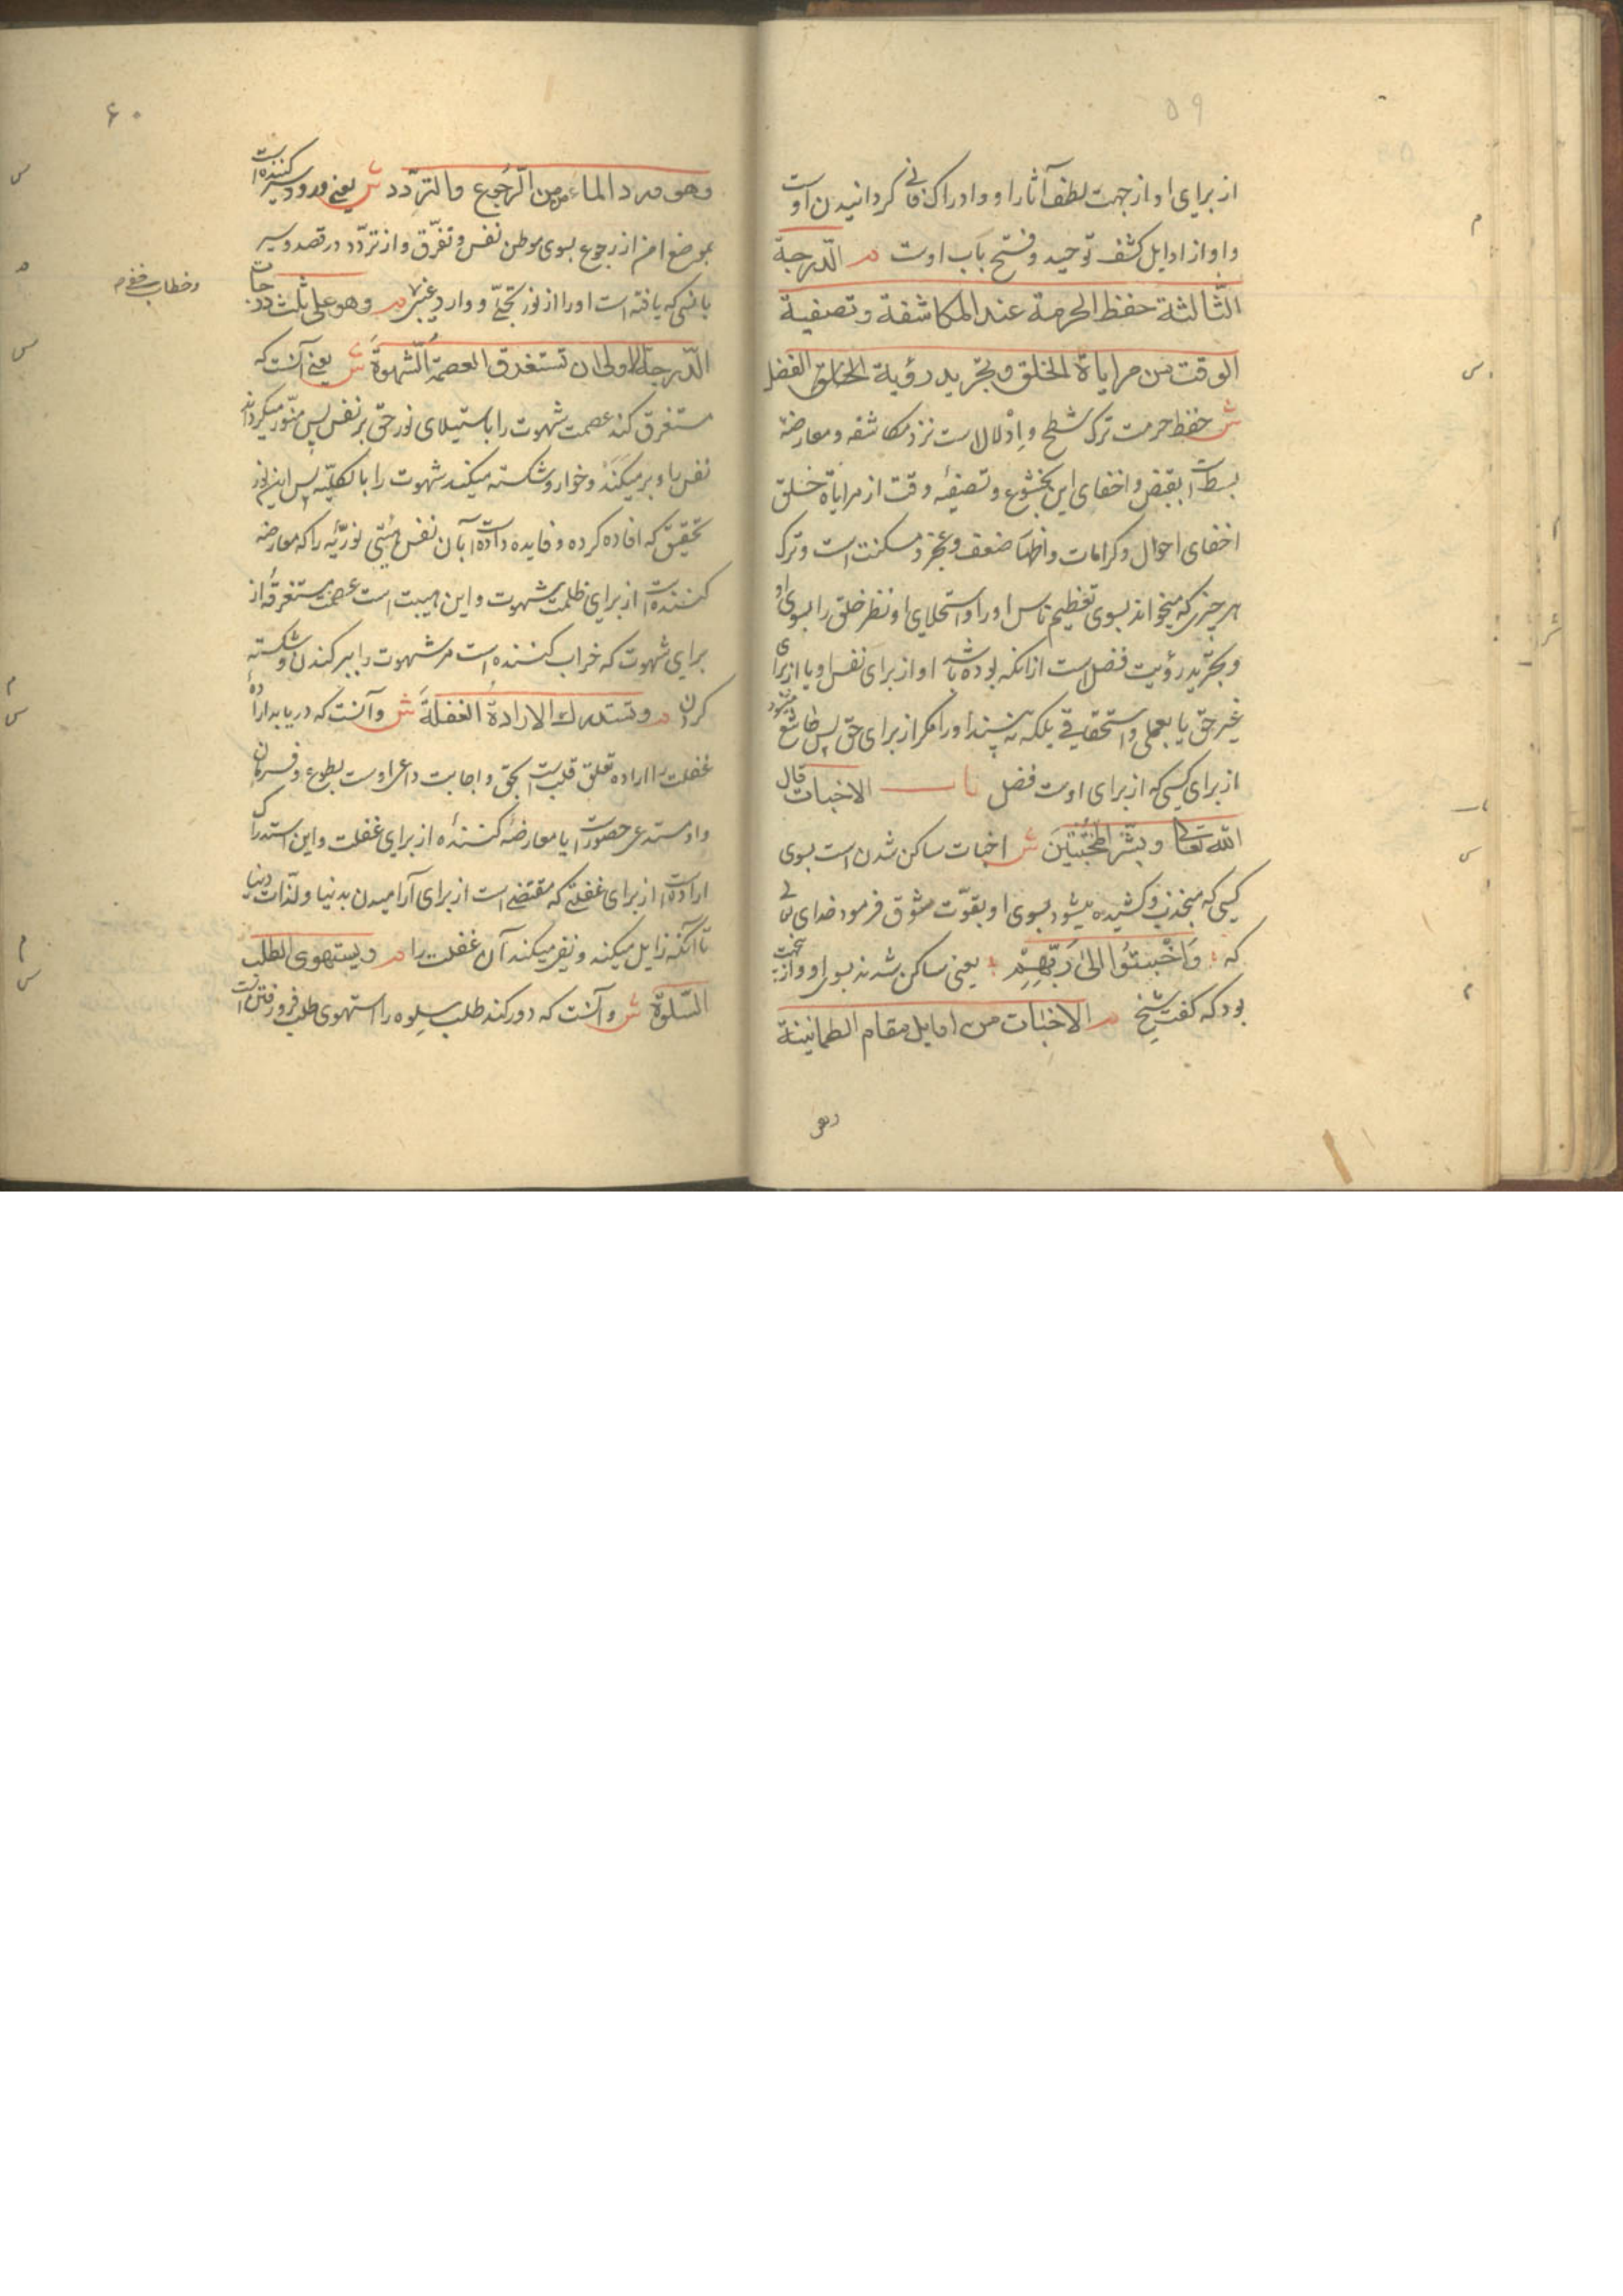 ۵۹
از برای او از جهت لطف آثار او و ادراک فانی گردانیدن اوست
و او از اوایل کشف توحید و فتح باب اوست م الدّرجة
الثّالثة حفظ الحرمة عند المكاشفة و تصفية
الوقت من مراياة الخلق و تجريد رؤية الفضل
ش حفظ حرمت ترک شطح و اِدْلال است نزد مکاشفه و معارضهٔ
بسط است بقبض و اخفای این بخشوع و تصفیهٔ وقت از مرایاة خلق
اخفای احوال و کرامات و اظهار ضعف و عجز و مسکنت است و ترک
هر چیزی که میخواند بسوی تعظیم ناس او را و استحلای او نظر خلق را بسوی او
و تجرید رؤیت فضل است از آنکه بوده باشد او از برای نفس او یا از برای
غیر حق یا بعملی و استحقاقی بلکه نه بیند او را مگر از برای حق پس خاشع میشود
از برای کسی که از برای اوست فضل باب الاخبات قال
الله تعالی و بَشِّرِ الْمُخْبِتِینَ ش اخبات ساکن شدن است بسوی
کسی که منجذب و کشیده میشود بسوی او بقوّت شوق فرمود خدای تعالی
که وَاَخْبَتُوا اِلیٰ رَبِّهِمْ یعنی ساکن شدند بسوی او و از این جهت
بود که گفت شیخ م الاخبات من اوايل مقام الطمانينة
وهو
۶۰
وهو ورود المامن من الرّجوع والتردّد ش یعنی ورود سیر کننده است
بموضع امن از رجوع بسوی موطن نفس و تفرّق و از تردّد در قصد و سیر
بانسی که یافته است او را از نور تجلّی و وارد غیبی م وهو علی ثلث درجات
و خطاب
الدّرجة الاولی ان تستغرق العصمةُ الشّهوةَ ش یعنی آنست که
مستغرق کند عصمت شهوت را باستیلای نور حق بر نفس پس منوّر میگرداند
نفس را و بر میکَنَد و خوار و شکسته میکند شهوت را بالکلیّه پس این نور
تحقیق که افاده کرده و فایده داده است آن نفس هیئتی نوریّه را که معارضه
کننده است از برای ظلمت شهوت و این هیبت است عصمت مستغرقه از
برای شهوت که خراب کننده است مر شهوت را ببر کندن و شکسته
کردن م و تستدرك الارادةُ الغفلةَ ش و آنست که دریابد اراده
غفلت را اراده تعلق قلب است بحق و اجابت داعی اوست بطوع و فرمان
و او مستدعی حضور است با معارضهٔ کننده از برای غفلت و این استدراک
اراده است از برای غفلتی که مقتضی است از برای آرامیدن بدنیا و لذّات دنیا
تا آنکه زایل میکند و نفی میکند آن غفلت را م و یستهوی الطلب
السّلوة ش و آنست که دور کند طلب سلوه را استهوی طلب فرو رفتن است